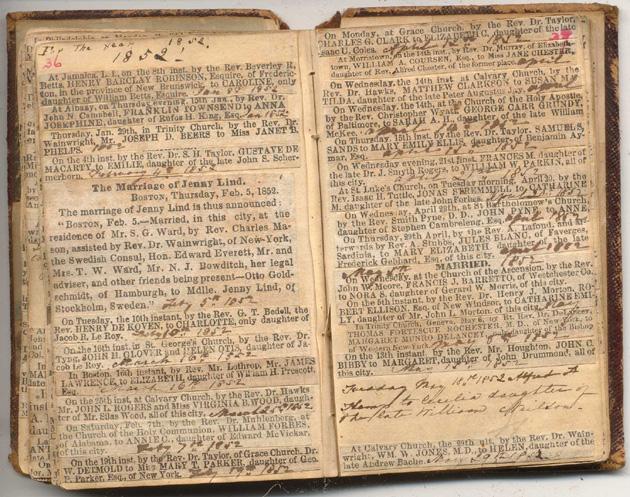 For The Year 1852.
1852.
36
At Jamaica, L. I., on the 8th inst., by the Rev. Beverley R.
Betts, HENRY BARCLAY ROBINSON, Esquire, of Frederic-
ton, in the Province of New Brunswick, to CAROLINE, only
daughter of William Betts, Esquire. Jan 8th 1852
At Albany, on Thursday evening, 15th Jan., by Rev. Dr.
John N. Campbell, FRANKLIN TOWNSEND to ANNA
JOSEPHINE, daughter of Rufus H. King, Esq. Jan 1852
Thursday, Jan. 29th, in Trinity Church, by the Rev. Dr.
Wainwright, Mr. JOSEPH D. BEERS to Miss JANET B.
PHELPS.
On the 4th inst. by the Rev. Dr. S. H. Taylor, GUSTAVE DE
MACARTY, to EMILIE, daughter of the late John S. Scher-
merhorn. February 4th 1852
The Marriage of Jenny Lind.
BOSTON, Thursday, Feb. 5, 1852.
The marriage of Jenny Lind is thus announced:
"BOSTON, Feb. 5.—Married, in this city, at the
residence of Mr. S. G. Ward, by Rev. Charles Ma-
son, assisted by Rev. Dr. Wainwright, of New-York,
the Swedish Consul, Hon. Edward Everett, Mr. and
Mrs. T. W. Ward, Mr. N. J. Bowditch, her legal
adviser, and other friends being present—Otto Gold-
schmidt, of Hamburg, to Mdlle. Jenny Lind, of
Stockholm, Sweden." Feby 5th 1852
On Tuesday, the 10th instant, by the Rev. G. T. Bedell, the
Rev. HENRY DE KOVEN, to CHARLOTTE, only daughter of
Jacob R. Le Roy.
On the 18th inst. in St. George's Church, by the Rev. Dr.
Tyng, JOHN H. GLOVER and HELEN OTIS, daughter of Ja-
cob Le Roy. 1852
In Boston, 16th instant, by Rev. Mr. Lothrop, Mr. JAMES
LAWRENCE, to ELIZABETH, daughter of William H. Prescott,
Esq. 1852
On the 25th inst, at Calvary Church, by the Rev. Dr. Hawks
Mr. JOHN L. ROGERS and Miss VIRGINIA ELWOOD, daugh-
ter of Mr. Elias Wood, all of this city. March 25th 1852
On Saturday, Feb. 7th, by the Rev. Dr. Muhlenberg, at
the Church of the Holy Communion, WILLIAM FORBES,
of Alabama, to ANNIE C., daughter of Edward McVickar,
of this city. 1852
On the 19th inst. by the Rev. Dr. Taylor, of Grace Church, Dr.
W. DETMOLD to Mrs MARY T. PARKER, daughter of Geo.
P. Parker, Esq., of New York.
On Monday, at Grace Church, by the Rev. Dr. Taylor,
CHARLES G. CLARK to ELIZABETH C., daughter of the late
Isaac U. Coles. April 1852
At Morristown, on the 14th inst., by Rev. Dr. Murray, of Elizabeth-
town, WILLIAM A. COURSEN, Esq., to Miss JANE CHESTER,
daughter of Rev. Alfred Chester, of the former place. April
On Wednesday, the 14th inst at Calvary Church, by the
Rev. Dr. Hawks, MATTHEW CLARKSON to SUSAN MA-
TILDA, daughter of the late Peter Augustus Jay. April
On Wednesday, the 14th, at the Church of the Holy Apostle,
by the Rev. Christopher Wyatt, GEORGE CARR GRUNDY,
of Baltimore, to SARAH A. H., daughter of the late William
McKee.
On Thursday, 15th inst. by the Rev. Dr. Taylor, SAMUEL S.
SANDS to MARY EMILY ELLIS, daughter of Benjamin Ay-
mar, Esq.
On Wednesday evening, 21st inst. FRANCES M. daughter of
the late Dr. J. Smyth Rogers, to WILLIAM W. PARKIN, all of
this city.
At St. Luke's Church, on Tuesday morning, April 20, by the
Rev. Isaac H. Tuttle, JONAS FETTMELL to CATHARINE
M. daughter of the late John Forbes.
On Wednesday, April 28th, at St. Bartholomew's Church,
by the Rev. Smith Pyne, D. D., JOHN PYNE to ANNE,
daughter of Stephen Cambreleng, Esq. April 1852
On Thursday, 8th April, by the Rev. F. Lafond, and af-
terwards by Rev. A. Stubbs, JULES BIANCO, of Faverges,
Sardinia, to MARY ELIZABETH, daughter of the late
Frederick Gebhard, Esq. of this city. April 1852
MARRIED. 1852
On Wednesday, at the Church of the Ascension, by the Rev.
John W. Moore, FRANCIS J. BARRETTO, of Westchester Co.
to NORA S. daughter of Gerard W. Morris, of this city.
On the 6th instant, by the Rev. Dr. Henry J. Morton, RO-
BERT ELLISON, Esq. of New Windsor, to CATHARINE EMI-
LY, daughter of Mr. John L. Morton, of this city. May
THOMAS FORTESCUE ROCHESTER, M. D., of
MARGARET MUNRO DELANCEY, daughter of the Bishop
of Western New-York.
On the 13th instant, by the Rev. Mr. Houghton, JOHN C.
BIBBY to MARGARET, daughter of John Drummond, all of
this city.
Tuesday May 18th 1852 Alfred A
to Cecelia daughter of
the late William
At Calvary Church, the 29th ult., by the Rev. Dr. Wain-
wright, WM. W. JONES, M.D., to HELEN, daughter of the
late Andrew Bache.